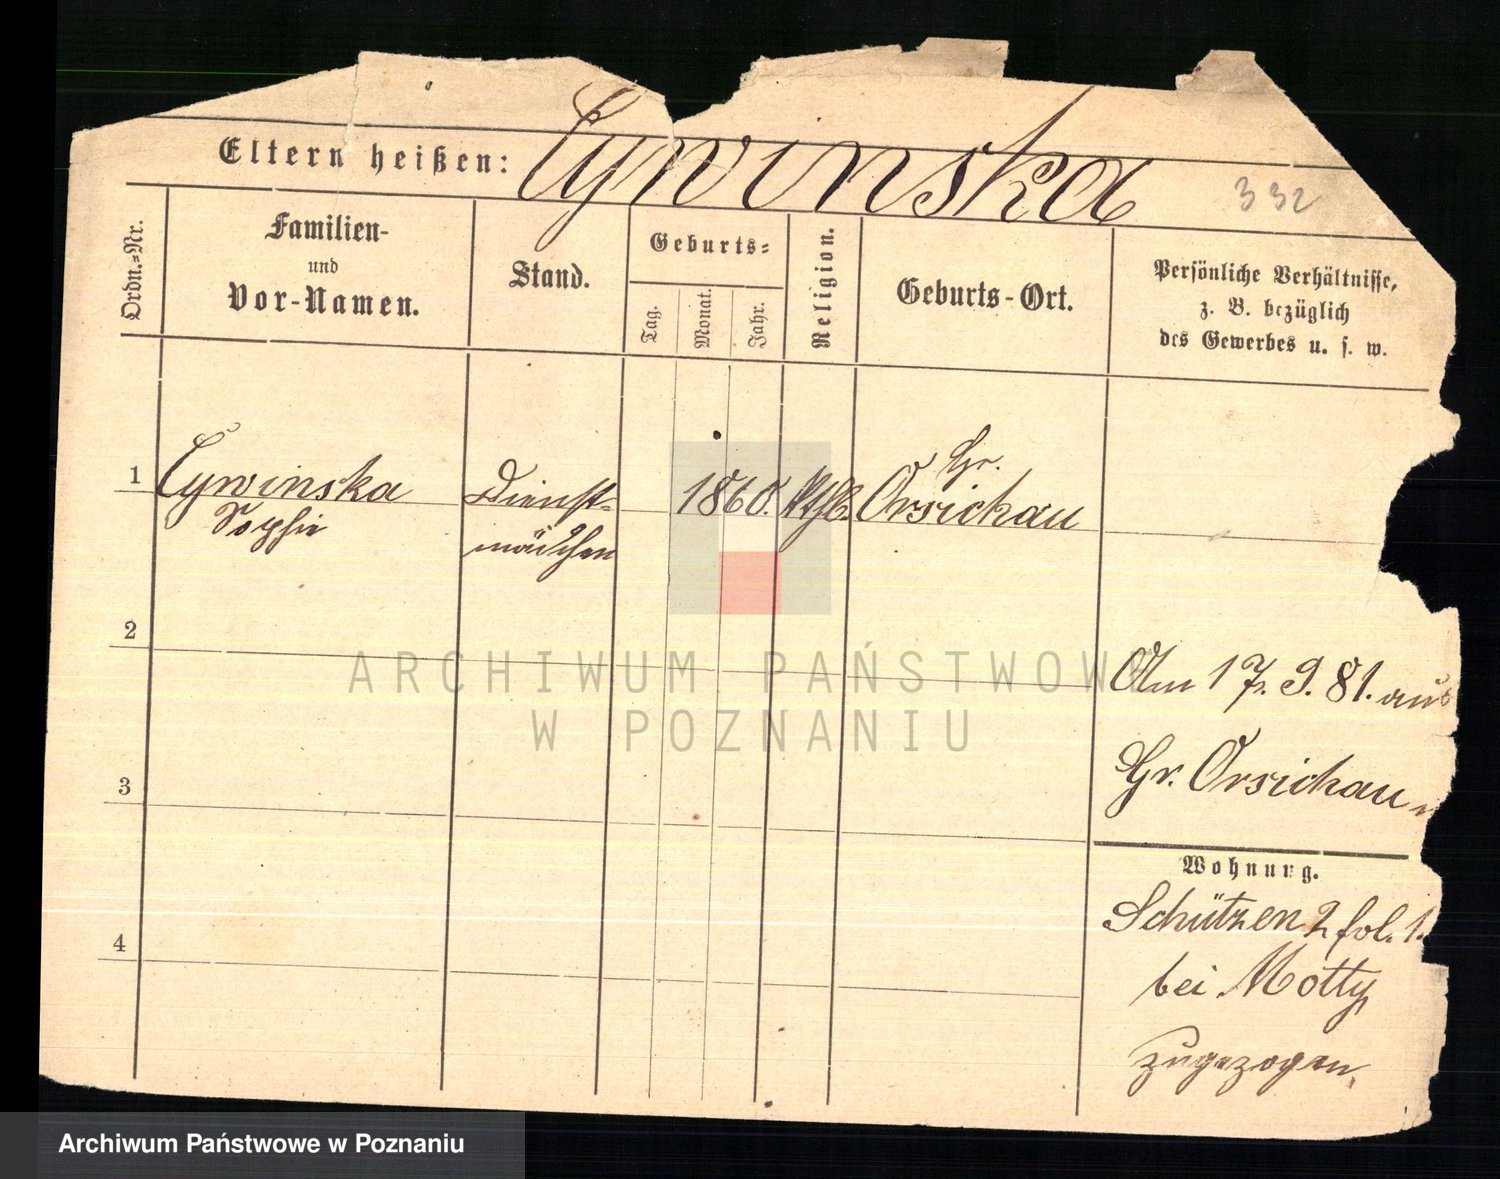 Eltern heißen: Cywinska
332
Ordn.-Nr.
Familien-
und
Vor-Namen.
Stand.
Geburts-
Tag.
Monat.
Jahr.
Religion.
Geburts-Ort.
Persönliche Verhältnisse,
z. B. bezüglich
des Gewerbes u. s. w.
1
Cywinska
Sophie
Dienst-
mädchen
1860.
kthl.
Gr.
Orsichau
2
Am 17. 9. 81. aus
Gr. Orsichau
3
Wohnung.
Schützen 2 fol. 1.
bei Motty
zugezogen.
4
ARCHIWUM PAŃSTWOWE
W POZNANIU
Archiwum Państwowe w Poznaniu